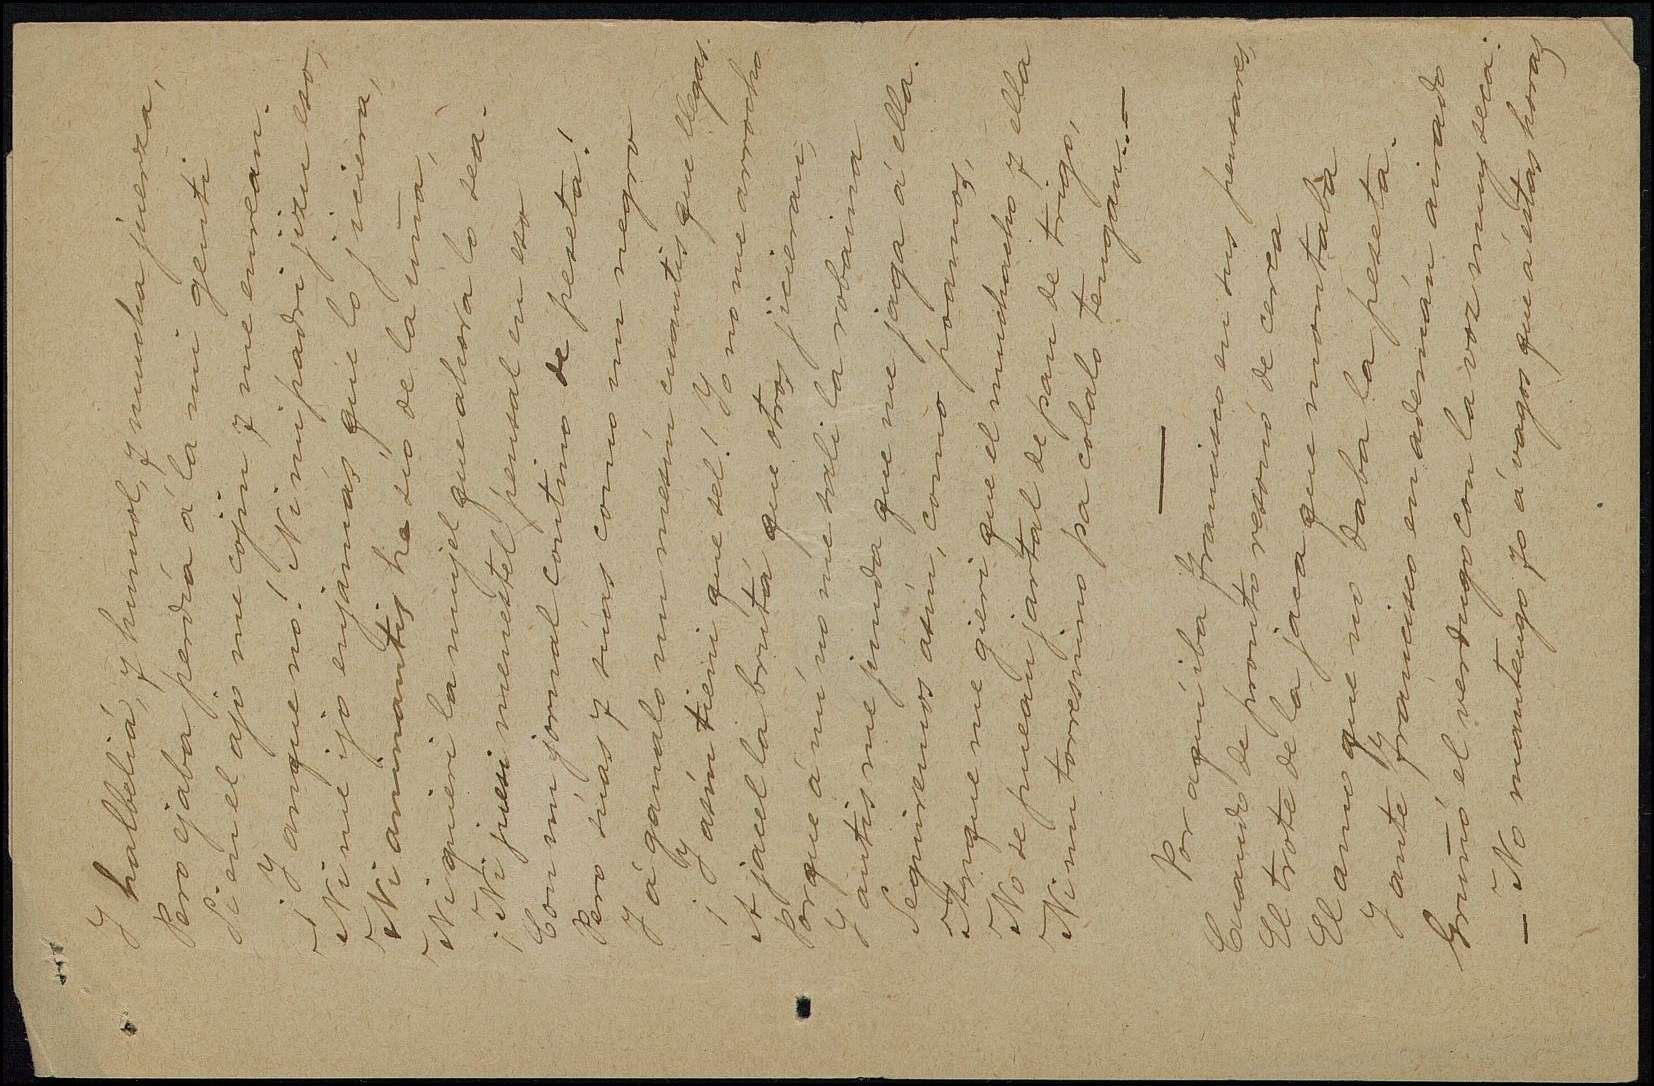 Y halbeliá, y humol, y mucha juerza,
Pero ejaba perdía á la mi genti
Si enel ajo me cojin y me enrean.
¡Y anque nó! Ni mi padri jizu eso,
Ni mi ijo enjamás que lo jiciera,
Ni animantis he sío de la uña,
Ni quieri la mujel que ahora lo sea.
¡Ni juesi menestel pensal en eso
Con un jornal contino de peseta!
Pero súas y súas como un negro
Y á ganalo un mesín enantis que llegas.
¡Y asín tieni que sel! Yo no me arrocho
A jaeel la brutá que otros jicieran,
Porque á mí no me sali la robaina
Y antis me junda que me jaga á ella.
Seguiremos asín, como poamos,
Anque me gieri que el muchacho y ella
No se puean jartal de pan de trigo,
Ni un torresnino pa colalo tengan...—
Por aquí iba Francisco en sus pensares,
Cuando de pronto resonó de cerca
El trote de la jaca que montaba
El amo que no daba la peseta.
Y ante Francisco en ademán airado
Gruñó el verdugo con la voz muy seca:
— No mantengo yo á vagos que á estas horas